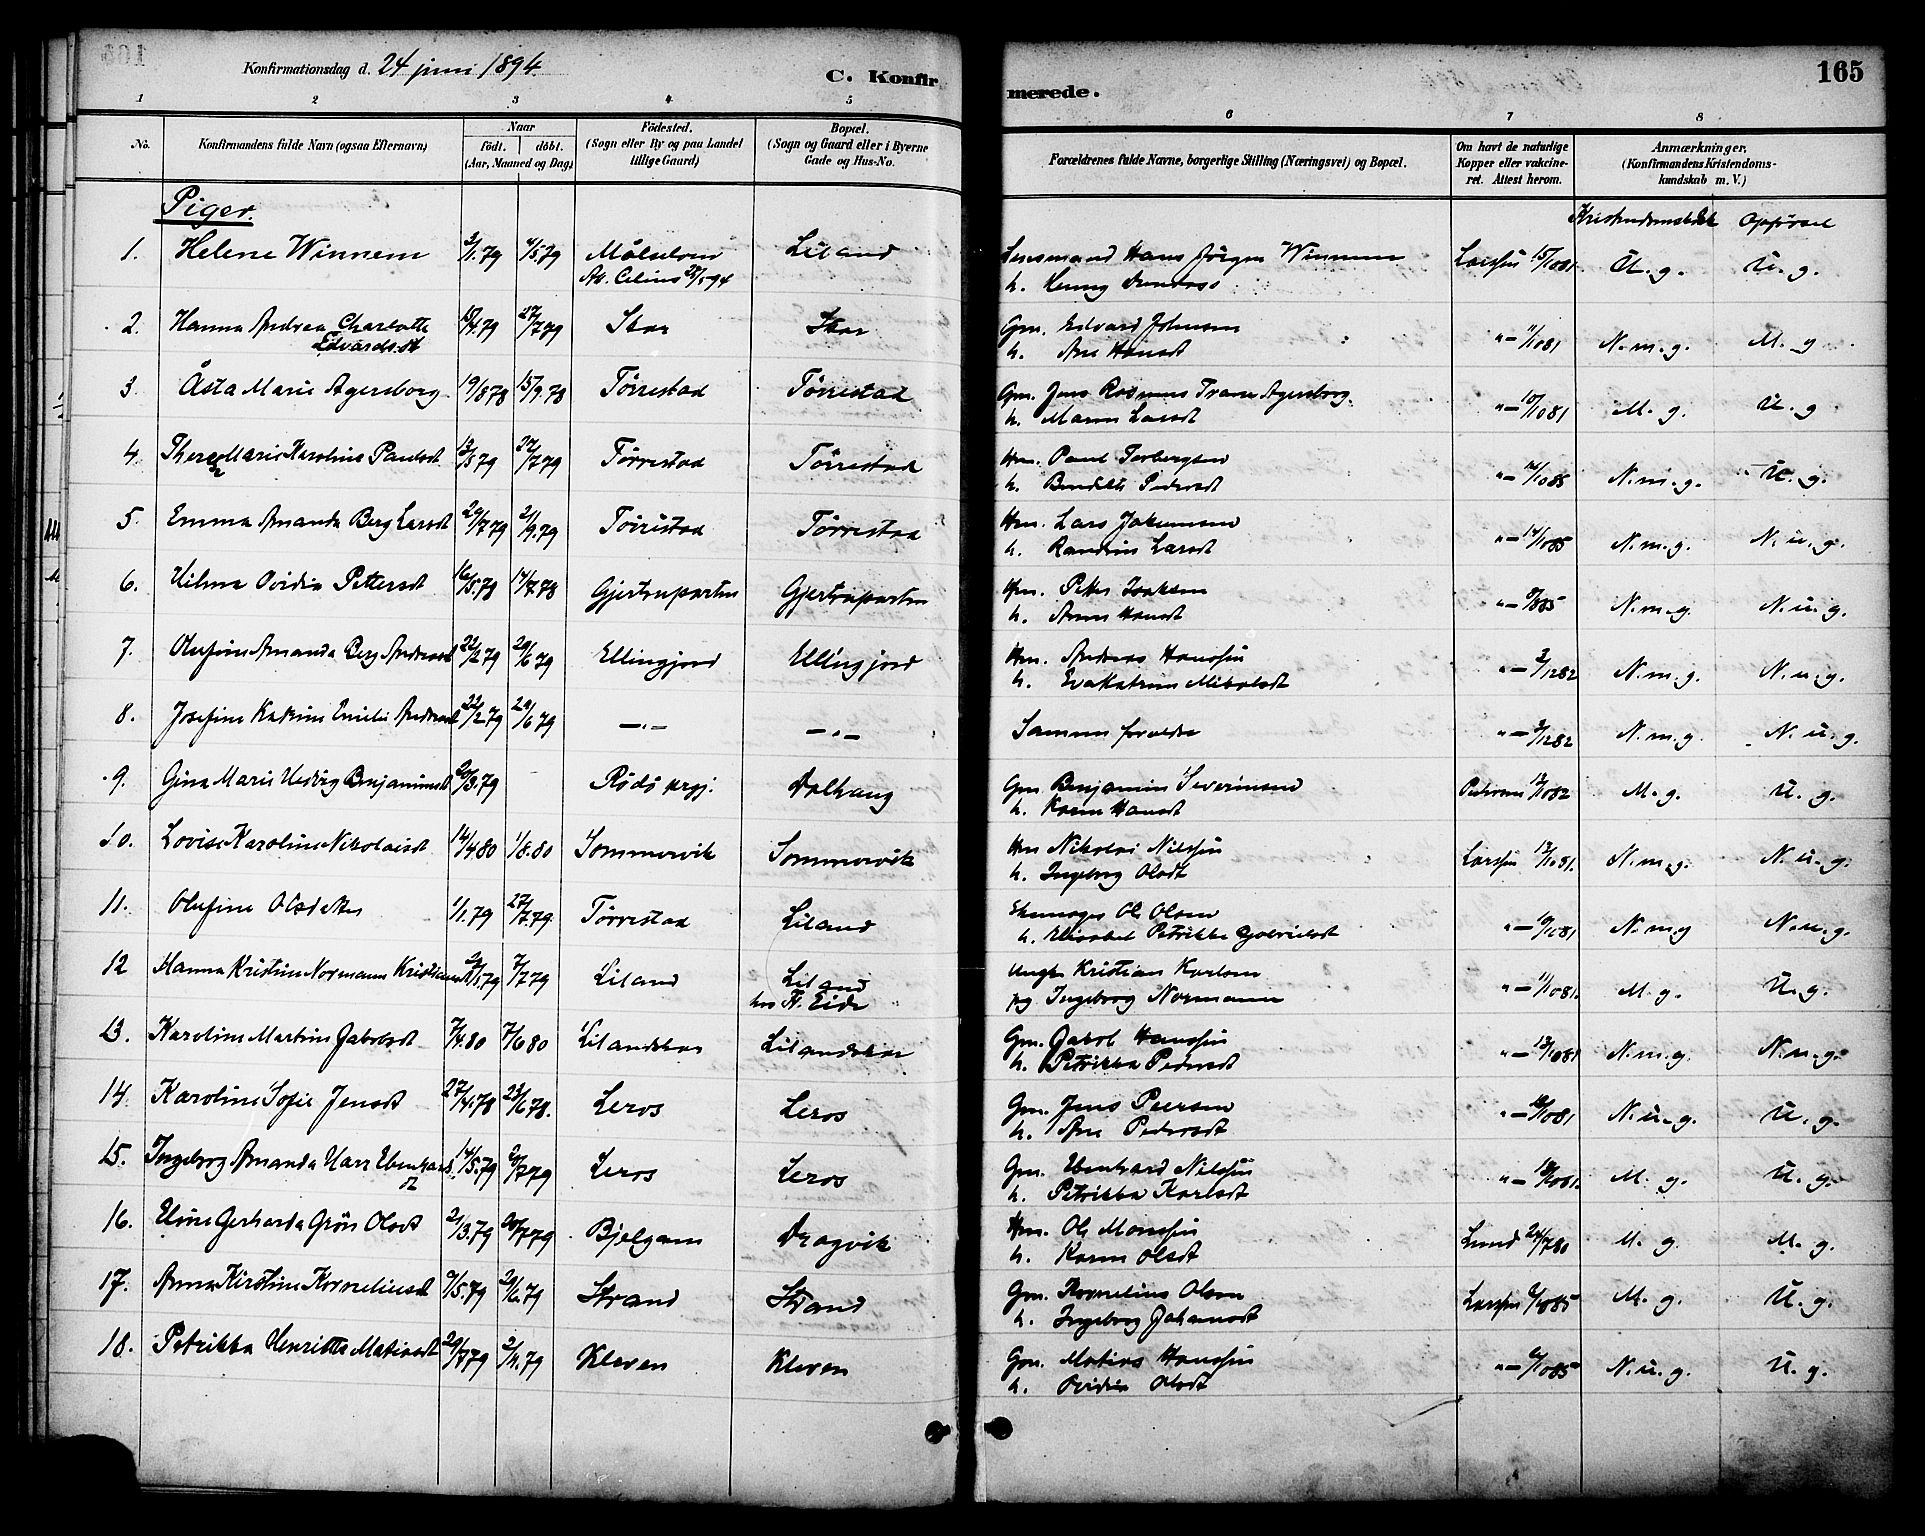 Konfirmationsdag d. 24 juni 1894.
C. Konfir
merede.
165
1 2 3 4 5
6 7 8
No.
Konfirmandens fulde Navn (ogsaa Efternavn)
Naar
födt. döbt.
(Aar, Maaned og Dag)
Födested.
(Sogn eller By og paa Landet
tillige Gaard)
Bopæl.
(Sogn og Gaard eller i Byerne
Gade og Hus-No.
Forældrenes fulde Navne, borgerlige Stilling (Næringsvei) og Bopæl.
Om havt de naturlige
Kopper eller vakcine-
ret. Attest herom.
Anmærkninger,
(Konfirmandens Kristendoms-
kundskab m. V.)
Piger.
Opförsel
1. Helene Winnem 3/1.79 4/5.79 Målselven Liland
At. Celius 28/5 94
Hans Jörgen Winnem Larssen 15/10 81. U. g. U. g.
2. Hanna Andrea Charlotte
Edvardsdt
/4.79 27/7 79 Skar Skar
Gm. Edvard Johnsen
h. Ane Hansdt
"— 11/10 81 N. m. g. M. g.
3. Åsta Marie Agersborg 19/8 78 15/9.78 Törrestad Törrestad
Gm. Jens Rasmus Trane Agersborg.
h. Maren Larsdt
"— 10/10 81 M. g. U. g
4. Marie Karoline Paulsdt 13/5 79 27/7 79 Törrestad Törrestad
Hm. Paul Torbergsen
h. Pedersdt
N. m. g. U. g.
5. Emma Amanda Berg Larsdt 29/7 79 21/9.79 Törrestad Törrestad
Hm. Lars Jakumsen
h. Larsdt
"— 14/10 85 N. m. g. N. u. g.
6. Hilma Ovidia Pettersdt 16/5.78 14/7.78 Gjertruparten Gjertruparten
Hm. Peter Isaksen
h. Anna Hansdt
N. m. g. N. u. g.
7. Olufine Amanda Berg Andreasd 22/2 79 29/6 79 Ellingjord Ellingjord
Hm. Andreas Hanssen
h. Eva Katrine Mikalsdt
"— 2/12 82 N. m. g. N. u. g.
8. Josefine Katrine Emilie Andreasd 22/2 79 29/6 79 —"— —"—
Samme forældre
"— 2/12 82 N. m. g. N. u. g.
9. Gina Marie Hedvig Benjaminsdt 20/3.79 Rödö prgj. Dalhaug
Gm Benjamin Severinsen
h. Karen Hansdt
Pedersen 12/10 82 M. g. U. g.
10. Lovise Karoline Nikolaisdt 14/4 80 1/8.80 Sommervik Sommervik
Hm Nikolai Nilssen
h. Ingeborg Olsdt
Larssen 13/10 81. N. m. g. N. u. g.
11. Olufine Olsdatter 1/1.79 27/7.79. Törrestad Liland
Ole Olsen
h. Elisabet Petrikke Gabrielsdt
"— 10/10 81 N. m. g N. u. g.
12 Hanna Kristine Normann Kristiansdt /5.79 7/7 79 Liland Liland
hos K. Eide
Ungk. Kristian Karlsen
pg Ingeborg Normann
"— 11/10 81. M. g. U. g.
13. Karoline Martine Jakobsdt 7/4.80 7/6 80 Lilandskar Lilandskar
Gm. Jakob Hanssen
h. Petrikka Pedersdt
"— 13/10 81 N. m. g. N. u. g.
14. Karoline Sofie Jensdt 27/4.78 23/6 78. Leros Leros
Gm. Jens Peersen
h. Ane Pedersdt
N. u. g. U. g.
15. Ingeborg Amanda Harr Ebenhards
dt
14/5.79 20/7 79 Leros Leros
Gm. Ebenhard Nilssen
h. Petrikka Karlsdt
M. g. U. g.
16. Eline Gerharda Grön Olsdt 21/3.79 20/7 79 Bjelgam Dragvik
Hm. Ole Monssen
h. Karen Olsdt
Lund 24/7 80 M. g. M. g.
17. Anna Kirstine Korneliusdt 9/5.79 29/6.79 Strand Strand
Gm. Kornelius Olsen
h. Ingeborg Johansdt
M. g. U. g.
18. Petrikka Henritta Matiasdt 29/7 79 2/11.79 Kleven Kleven
Gm. Matias Hanssen
h. Ovidia Olsdt
"— 6/10 85 N. u. g. U. g.